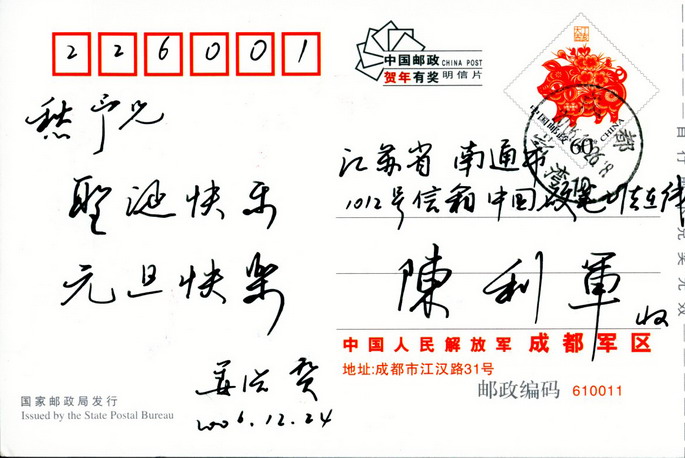 226001
中国邮政 CHINA POST
贺年有奖 明信片
中国邮政 60 CHINA
江苏省 南通市
1012号信箱 中国硬笔书法在线
陳利軍 收
中国人民解放军 成都军区
地址:成都市江汉路31号
邮政编码 610011
聖诞快乐
元旦快樂
2006.12.24
国家邮政局发行
Issued by the State Postal Bureau